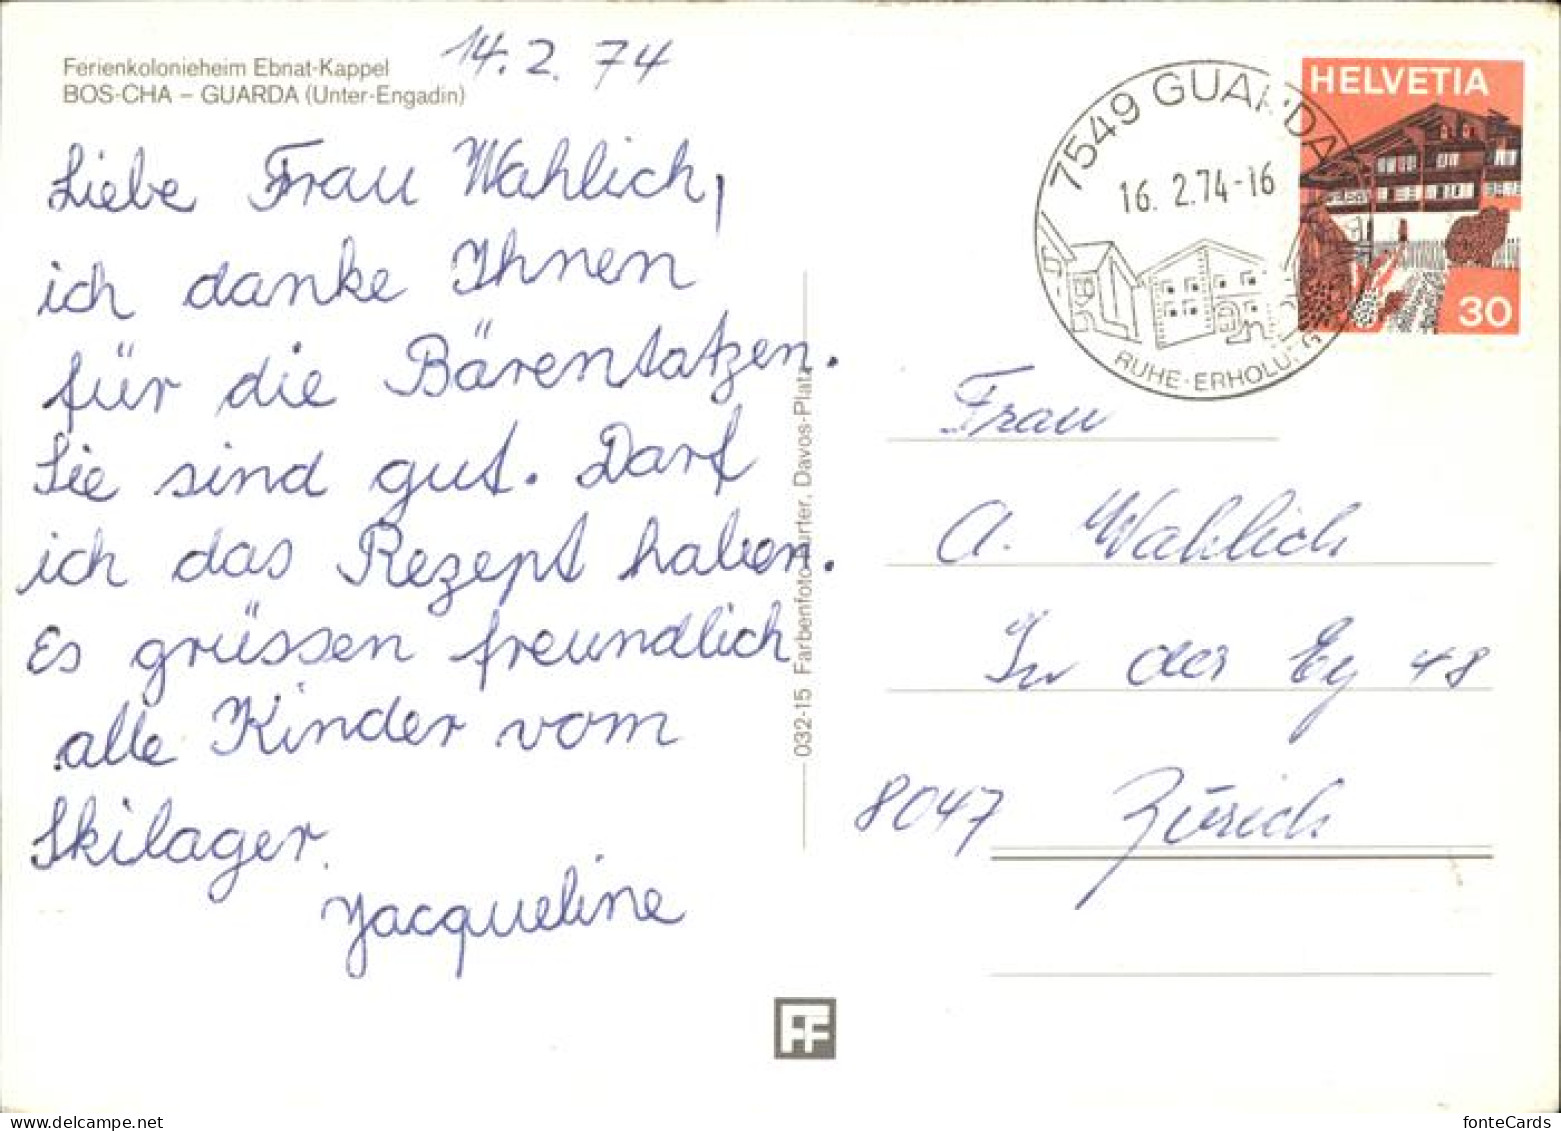 Ferienkolonieheim Ebnat-Kappel
BOS-CHA – GUARDA (Unter-Engadin)
14.2.74
Liebe Frau Wahlich,
ich danke Ihnen
für die Bärentatzen.
Sie sind gut. Darf
ich das Rezept haben.
Es grüssen freundlich
alle Kinder vom
Skilager.
Jacqueline
032-15 Farbenfoto Furter, Davos-Platz
FF
7549 GUARDA
16. 2.74-16
RUHE-ERHOLUNG
HELVETIA
30
Frau
A. Wahlich
In der Ey 48
8047 Zürich
fonteCards